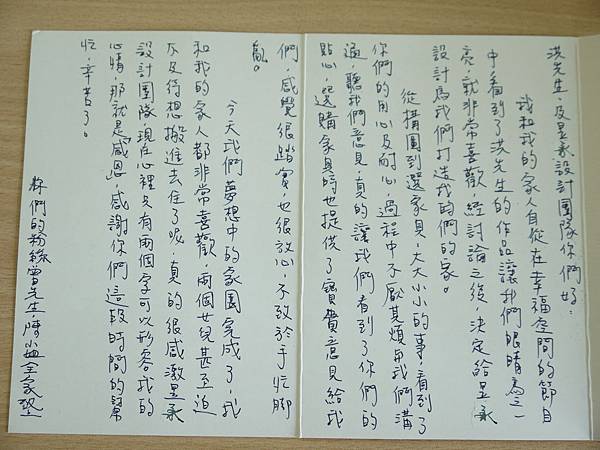 洪先生，及昱承設計團隊你們好：
我和我的家人自從在幸福空間的節目
中看到了洪先生的作品讓我們眼睛為之一
亮，就非常喜歡，經討論之後，決定給昱承
設計為我們打造我的們的家。
從構圖到選家具，大大小小的事，看到了
你們的用心及耐心，過程中不厭其煩與我們溝
通，聽我們意見，真的讓我們看到了你們的
貼心，選購家具時也提供了寶貴意見給我
們，感覺很踏實，也很放心，不致於手忙腳
亂。
今天我們夢想中的家園完成了，我
和我的家人都非常喜歡，兩個女兒甚至迫
不及待想搬進去住了呢，真的很感激昱承
設計團隊，現在心裡只有兩個字可以形容我的
心情，那就是"感恩"，感謝你們這段時間的幫
忙，辛苦了。
你們的粉絲曾先生，陳小姐全家